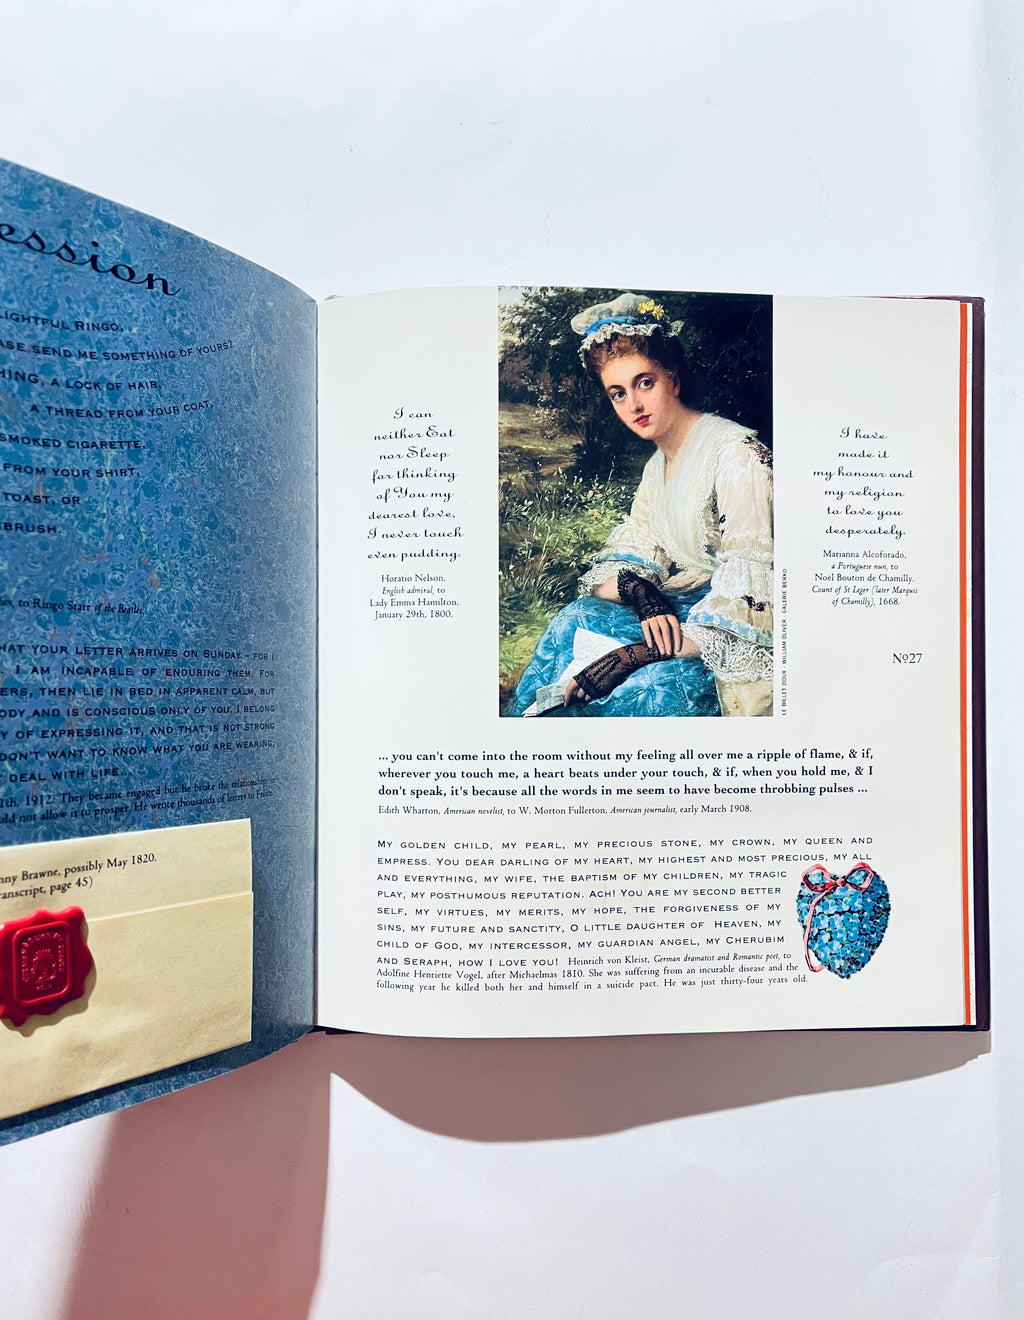 ession
LIGHTFUL RINGO,
ASE SEND ME SOMETHING OF YOURS?
HING, A LOCK OF HAIR,
A THREAD FROM YOUR COAT,
SMOKED CIGARETTE,
FROM YOUR SHIRT,
TOAST, OR
BRUSH.
to Ringo Starr of the Beatles.
HAT YOUR LETTER ARRIVES ON SUNDAY – FOR I
I AM INCAPABLE OF ENDURING THEM. FOR
ERS, THEN LIE IN BED IN APPARENT CALM, BUT
ODY AND IS CONSCIOUS ONLY OF YOU. I BELONG
Y OF EXPRESSING IT, AND THAT IS NOT STRONG
DON'T WANT TO KNOW WHAT YOU ARE WEARING,
DEAL WITH LIFE...
1th, 1912. They became engaged but he broke the relationship
uld not allow it to prosper. He wrote thousands of letters to Felice.
nny Brawne, possibly May 1820.
anscript, page 45)
I can
neither Eat
nor Sleep
for thinking
of You my
dearest love,
I never touch
even pudding.
Horatio Nelson,
English admiral, to
Lady Emma Hamilton,
January 29th, 1800.
LE BILLET DOUX · WILLIAM OLIVER · GALERIE BERKO
I have
made it
my honour and
my religion
to love you
desperately.
Marianna Alcoforado,
a Portuguese nun, to
Noël Bouton de Chamilly,
Count of St Leger (later Marquis
of Chamilly), 1668.
Nº27
... you can't come into the room without my feeling all over me a ripple of flame, & if,
wherever you touch me, a heart beats under your touch, & if, when you hold me, & I
don't speak, it's because all the words in me seem to have become throbbing pulses ...
Edith Wharton, American novelist, to W. Morton Fullerton, American journalist, early March 1908.
MY GOLDEN CHILD, MY PEARL, MY PRECIOUS STONE, MY CROWN, MY QUEEN AND
EMPRESS. YOU DEAR DARLING OF MY HEART, MY HIGHEST AND MOST PRECIOUS, MY ALL
AND EVERYTHING, MY WIFE, THE BAPTISM OF MY CHILDREN, MY TRAGIC
PLAY, MY POSTHUMOUS REPUTATION. ACH! YOU ARE MY SECOND BETTER
SELF, MY VIRTUES, MY MERITS, MY HOPE, THE FORGIVENESS OF MY
SINS, MY FUTURE AND SANCTITY, O LITTLE DAUGHTER OF HEAVEN, MY
CHILD OF GOD, MY INTERCESSOR, MY GUARDIAN ANGEL, MY CHERUBIM
AND SERAPH, HOW I LOVE YOU! Heinrich von Kleist, German dramatist and Romantic poet, to
Adolfine Henriette Vogel, after Michaelmas 1810. She was suffering from an incurable disease and the
following year he killed both her and himself in a suicide pact. He was just thirty-four years old.